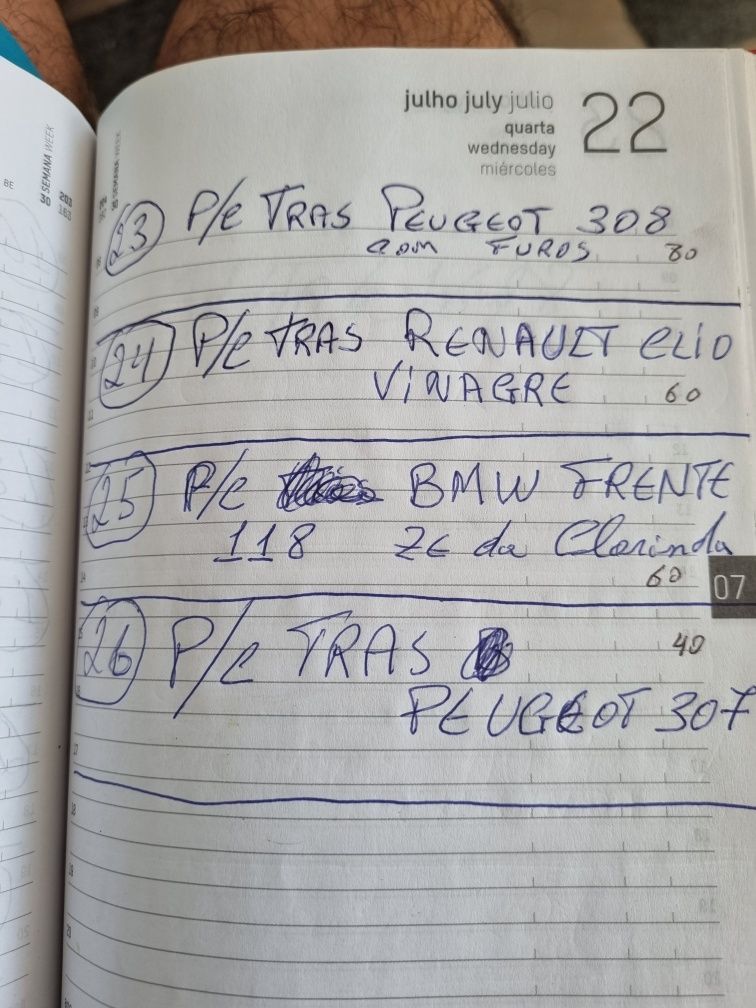 julho july julio 22
quarta
wednesday
miércoles
30 SEMANA WEEK
203
163
BE
23 P/C TRAS PEUGEOT 308
COM FUROS 80
24 P/C TRAS RENAULT CLIO
VINAGRE 60
25 P/C BMW FRENTE
118 Zé da Clorinda
60
07
26 P/C TRAS 40
PEUGEOT 307
17
18
19
20